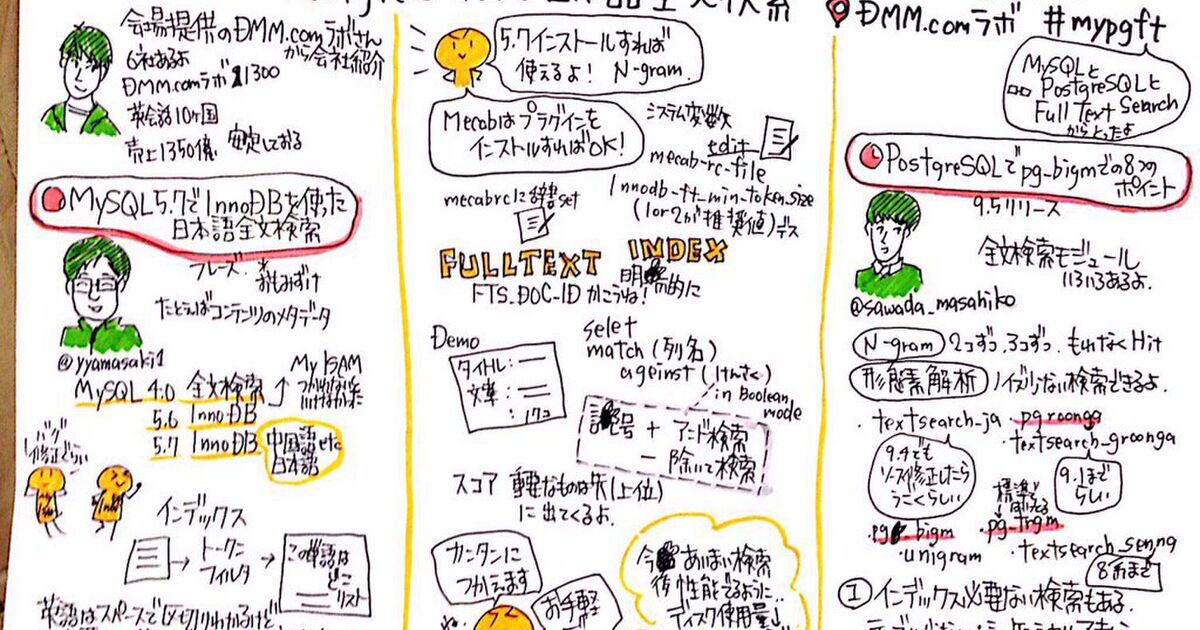 会場提供のDMM.comラボさん
から会社紹介
6社あるよ
DMM.comラボ 1300
英会話10ヶ国
売上1350億 安定しておる
MySQL5.7でInnoDBを使った
日本語全文検索
フレーズ
おもみずけ
たとえばコンテンツのメタデータ
@yyamasaki1
MySQL 4.0 全文検索
MyISAM
5.6 InnoDB
5.7 InnoDB 中国語 etc
日本語
バグ
修正ぐらい
インデックス
トークン
フィルタ
この単語は
どこ
リスト
英語はスペースで区切りわかるけど
5.7インストールすれば
使えるよ! N-gram
Mecabはプラグインを
インストルすればOK!
システム変数
edit
mecab-rc-file
mecabrcに辞書set
Innodb-ft-min-token_size
(1or2が推奨値)デス
FULLTEXT INDEX
明示的に
FTS_DOC-ID かこうね!
Demo
タイトル:
文章:
selet
match (列名)
against (けんさく)
in Boolean
mode
+ アンド検索
- 除いて検索
スコア 重要なものは先(上位)
に出てくるよ.
カンタンに
つかえます
お手軽
今
後
あいまい検索
性能でるように..
ディスク使用量↓
DMM.comラボ #mypgft
MySQLと
PostgreSQLと
Full Text Search
からとったよ
PostgreSQLでpg-bigmでの8つの
ポイント
9.5リリース
全文検索モジュール
いろいろあるよ.
@sawada_masahiko
N-gram 2つずつ,3つずつ. もれなくHit
形態素解析 ノイズ少ない検索できるよ.
・textsearch-ja ・pgroonga
・textsearch-groonga
9.4でも
ソース修正したら
うごくらしい
標準で
9.1まで
らしい
・pg bigm ・pg-trgm
・unigram ・textsearch_senna
8.4まで
① インデックス必要ない検索もある.